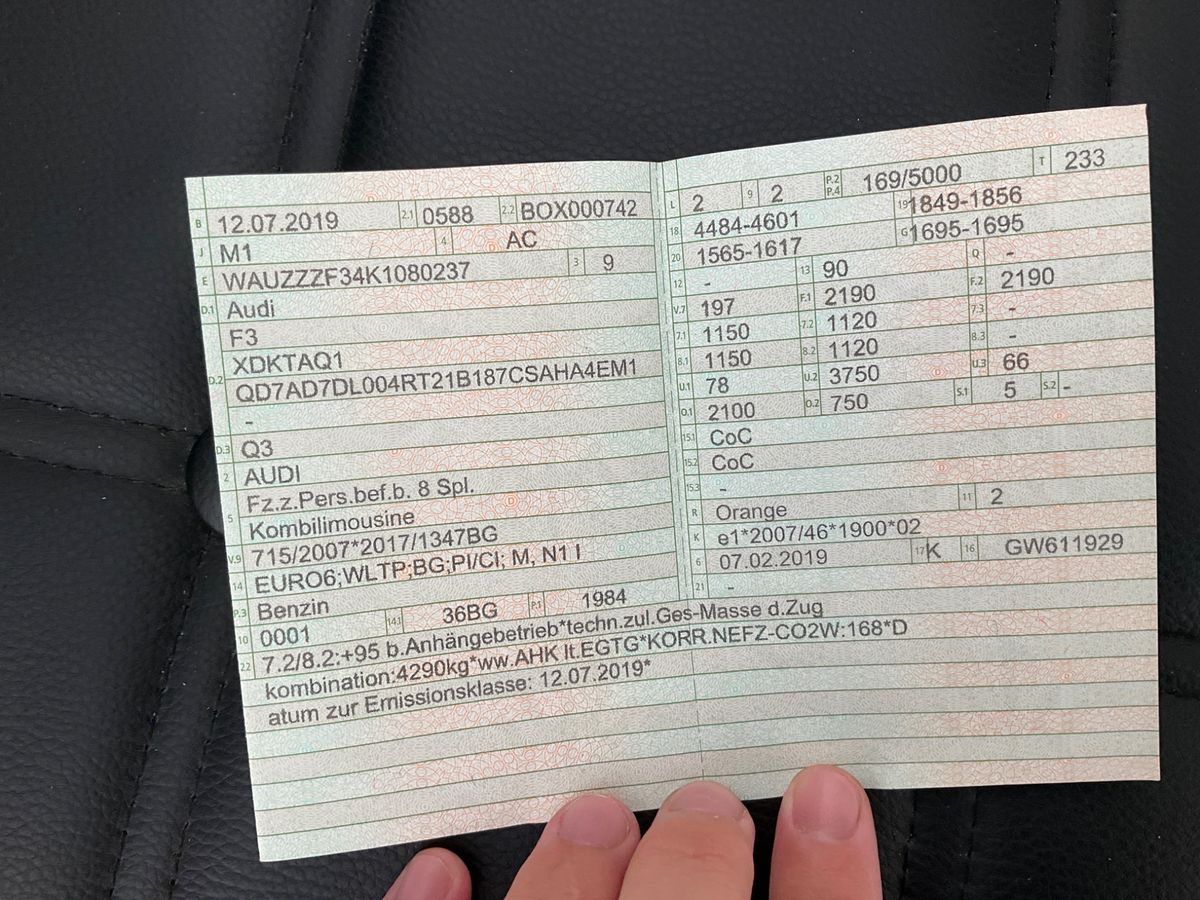 B 12.07.2019 2.1 0588 2.2 BOX000742
J M1 4 AC
E WAUZZZF34K1080237 3 9
D.1 Audi
F3
D.2 XDKTAQ1
QD7AD7DL004RT21B187CSAHA4EM1
-
D.3 Q3
2 AUDI
5 Fz.z.Pers.bef.b. 8 Spl.
Kombilimousine
V.9 715/2007*2017/1347BG
14 EURO6;WLTP;BG;PI/CI; M, N1 I
P.3 Benzin
10 0001 14.1 36BG P.1 1984
L 2 9 2 P.2 P.4 169/5000 T 233
18 4484-4601 19 1849-1856
20 1565-1617 G 1695-1695
12 - 13 90 Q -
V.7 197 F.1 2190 F.2 2190
7.1 1150 7.2 1120 7.3 -
8.1 1150 8.2 1120 8.3 -
U.1 78 U.2 3750 U.3 66
O.1 2100 O.2 750 S.1 5 S.2 -
15.1 CoC
15.2 CoC
15.3 -
R Orange 11 2
K e1*2007/46*1900*02
6 07.02.2019 17 K 16 GW611929
21 -
22 7.2/8.2:+95 b.Anhängebetrieb*techn.zul.Ges-Masse d.Zug
kombination:4290kg*ww.AHK lt.EGTG*KORR.NEFZ-CO2W:168*D
atum zur Emissionsklasse: 12.07.2019*